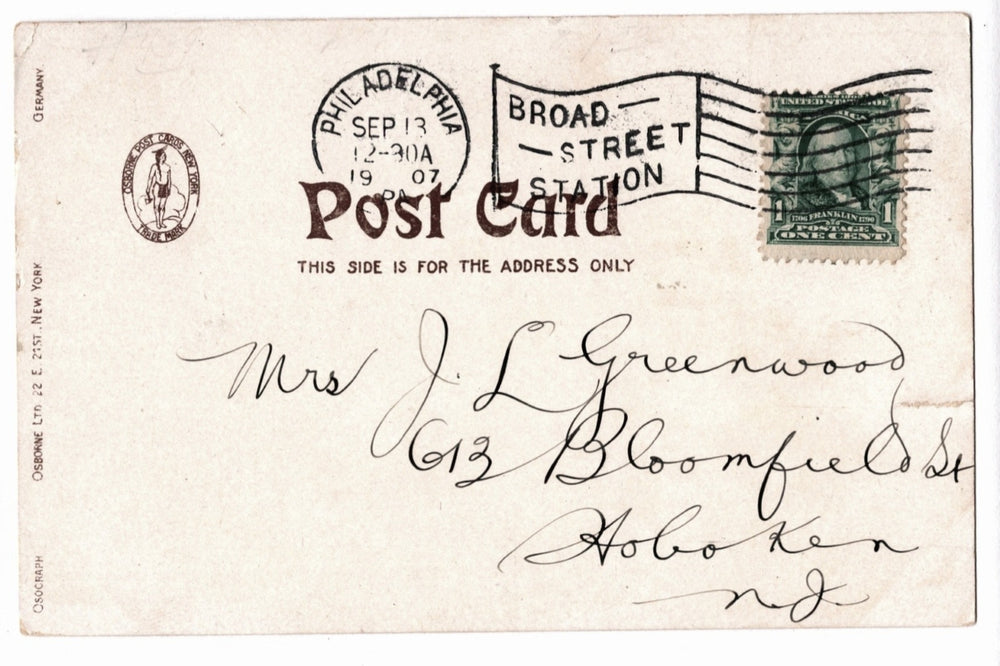 GERMANY.
OSBORNE LTD. 22 E. 21ST. NEW YORK
OSOGRAPH
OSBORNE POST CARDS NEW YORK
TRADE MARK
PHILADELPHIA
SEP 13
12-30A
19 07
PA.
BROAD
STREET
STATION
UNITED STATES OF
1 1706 FRANKLIN 1790 1
POSTAGE
ONE CENT
Post Card
THIS SIDE IS FOR THE ADDRESS ONLY
Mrs J. L Greenwood
613 Bloomfield St
Hoboken
N.J.